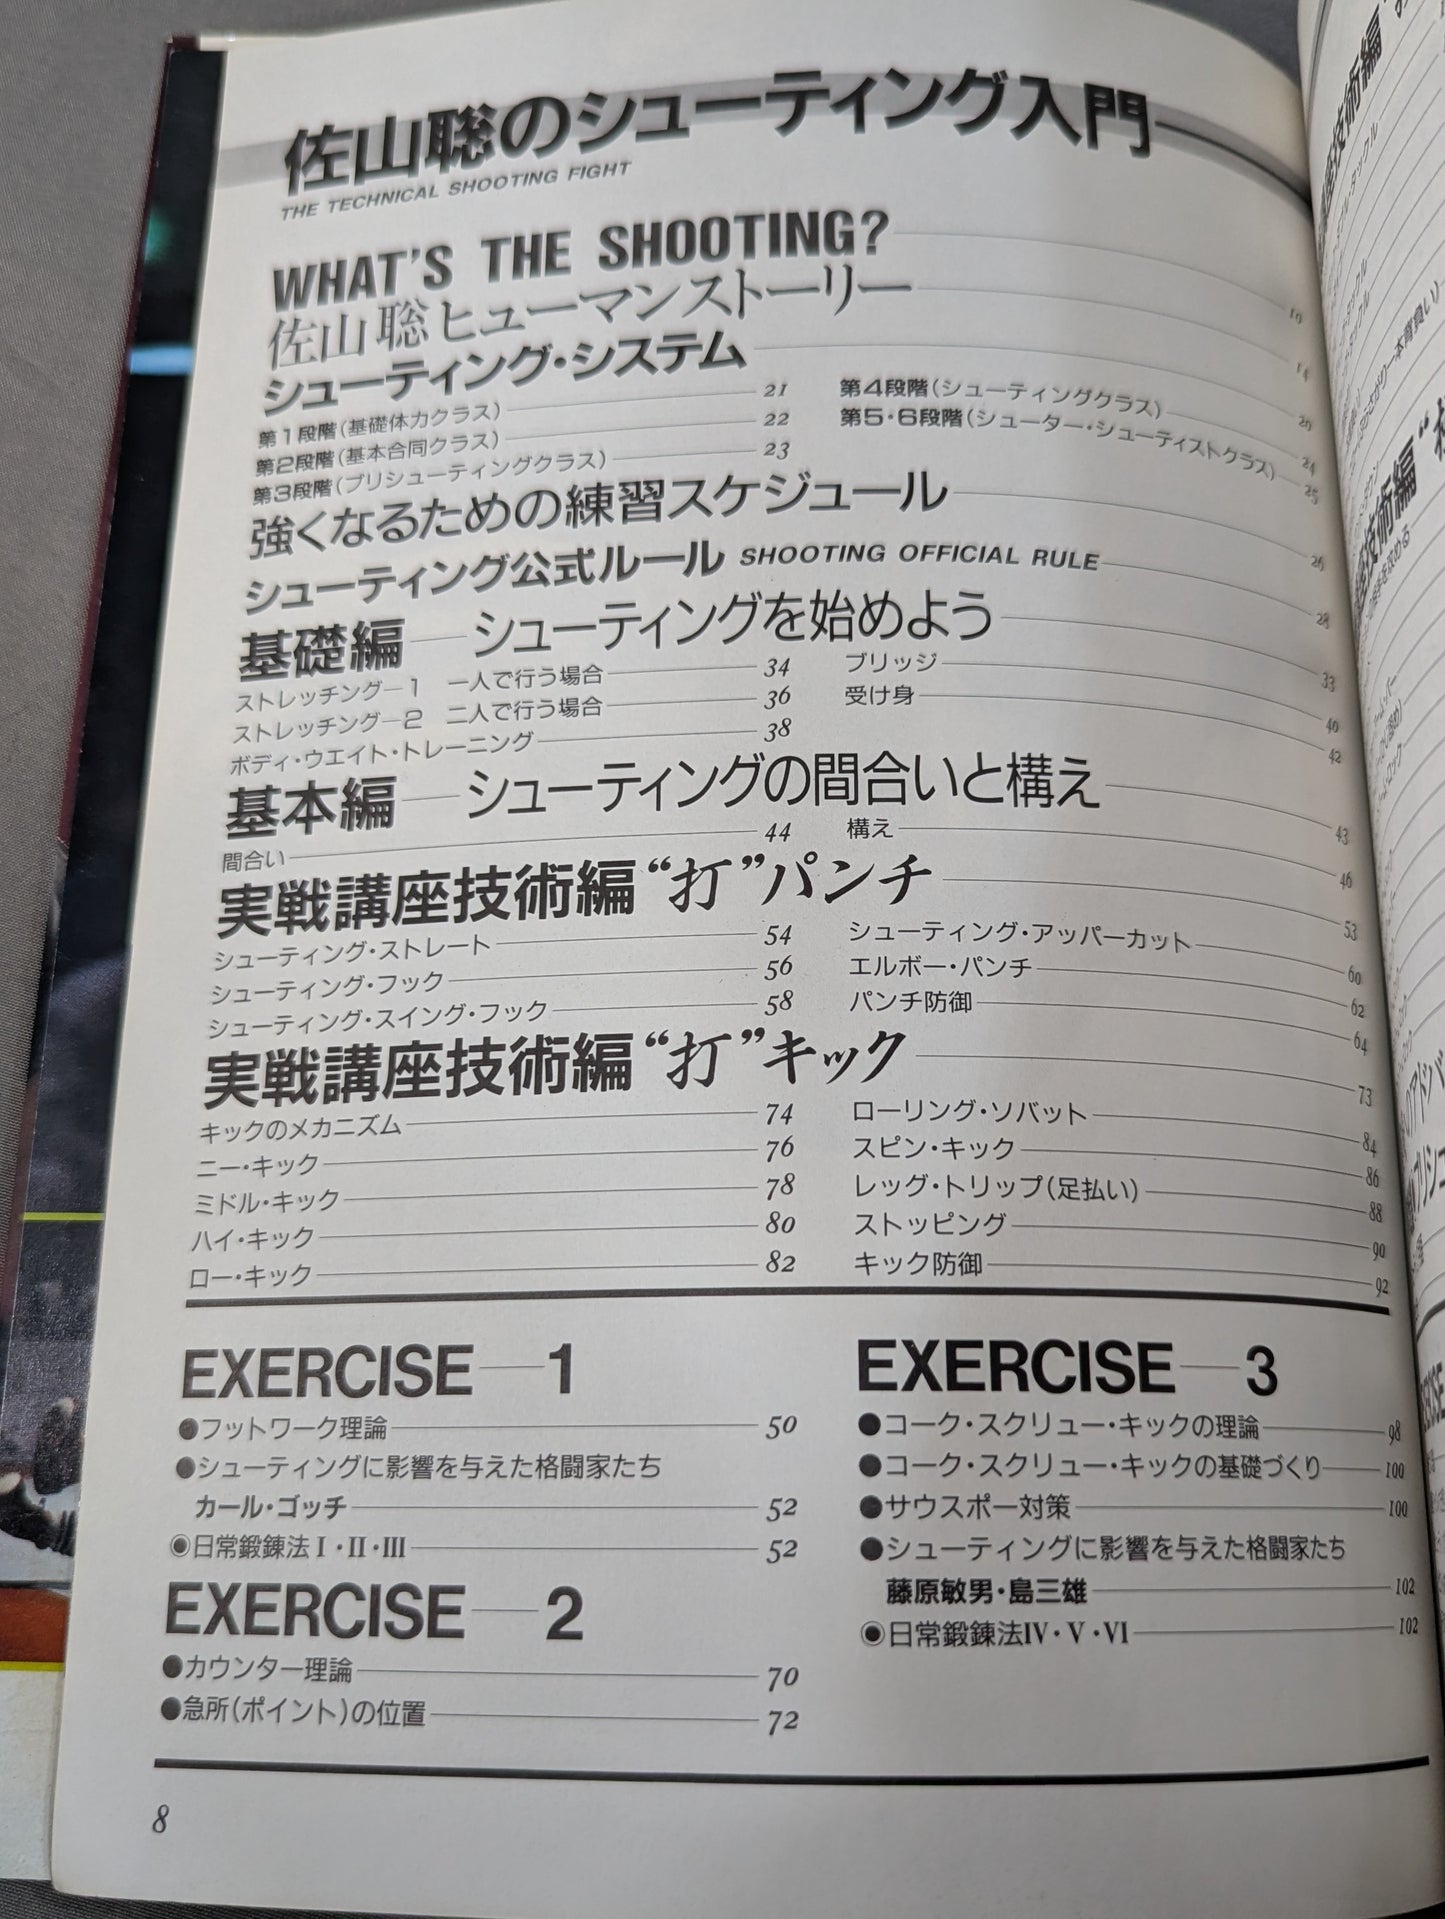 佐山聡のシューティング入門
THE TECHNICAL SHOOTING FIGHT
WHAT'S THE SHOOTING? 10
佐山聡ヒューマンストーリー 14
シューティング・システム 20
第1段階(基礎体力クラス) 21
第2段階(基本合同クラス) 22
第3段階(プリシューティングクラス) 23
第4段階(シューティングクラス) 24
第5・6段階(シューター・シューティストクラス) 25
強くなるための練習スケジュール 26
シューティング公式ルール SHOOTING OFFICIAL RULE 28
基礎編 シューティングを始めよう 33
ストレッチング—1 一人で行う場合 34
ストレッチング—2 二人で行う場合 36
ボディ・ウエイト・トレーニング 38
ブリッジ 40
受け身 42
基本編 シューティングの間合いと構え 43
間合い 44
構え 46
実戦講座技術編“打”パンチ 53
シューティング・ストレート 54
シューティング・フック 56
シューティング・スイング・フック 58
シューティング・アッパーカット 60
エルボー・パンチ 62
パンチ防御 64
実戦講座技術編“打”キック 73
キックのメカニズム 74
ニー・キック 76
ミドル・キック 78
ハイ・キック 80
ロー・キック 82
ローリング・ソバット 84
スピン・キック 86
レッグ・トリップ(足払い) 88
ストッピング 90
キック防御 92
EXERCISE—1
●フットワーク理論 50
●シューティングに影響を与えた格闘家たち
カール・ゴッチ 52
◉日常鍛錬法Ⅰ・Ⅱ・Ⅲ 52
EXERCISE—2
●カウンター理論 70
●急所(ポイント)の位置 72
EXERCISE—3
●コーク・スクリュー・キックの理論 98
●コーク・スクリュー・キックの基礎づくり 100
●サウスポー対策 100
●シューティングに影響を与えた格闘家たち
藤原敏男・島三雄 102
◉日常鍛錬法Ⅳ・Ⅴ・Ⅵ 102
8